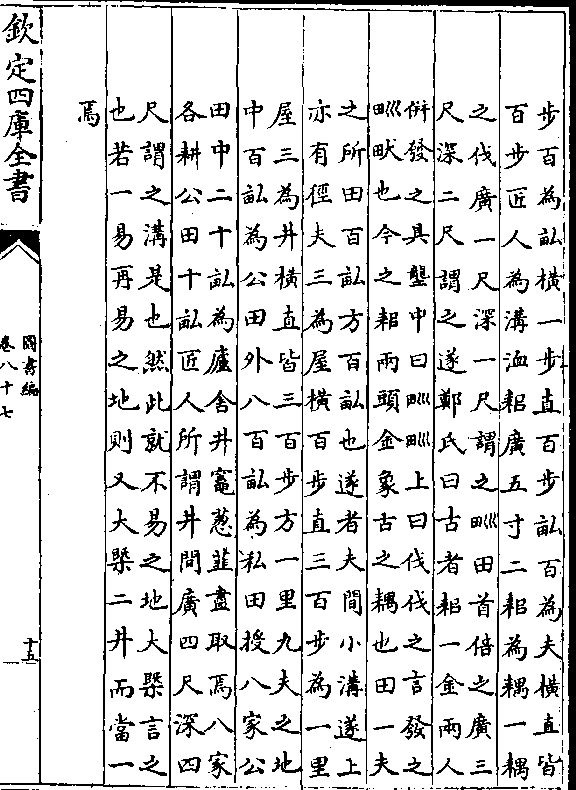 步百為畝橫一步直百步畝百為夫橫直皆
百步匠人為溝洫耜廣五寸二耜為耦一耦
之伐廣一尺深一尺謂之𤰕田首倍之廣三
尺深二尺謂之遂鄭氏曰古者耜一金兩人
併發之具壟中曰𤰕𤰕上曰伐伐之言發之
𤰕畎也今之耜兩頭金象古之耦也田一夫
之所田百畝方百畝也遂者夫間小溝遂上
亦有徑夫三為屋橫百步直三百步為一里
屋三為井橫直皆三百步方一里九夫之地
中百畝為公田外八百畝為私田授八家公
田中二十畝為廬舍井竈葱韭盡取焉八家
各耕公田十畝匠人所謂井間廣四尺深四
尺謂之溝是也然此就不易之地大槩言之
也若一易再易之地則又大槩二井而當一
焉
欽定四庫全書
圖書編
卷八十七
十五